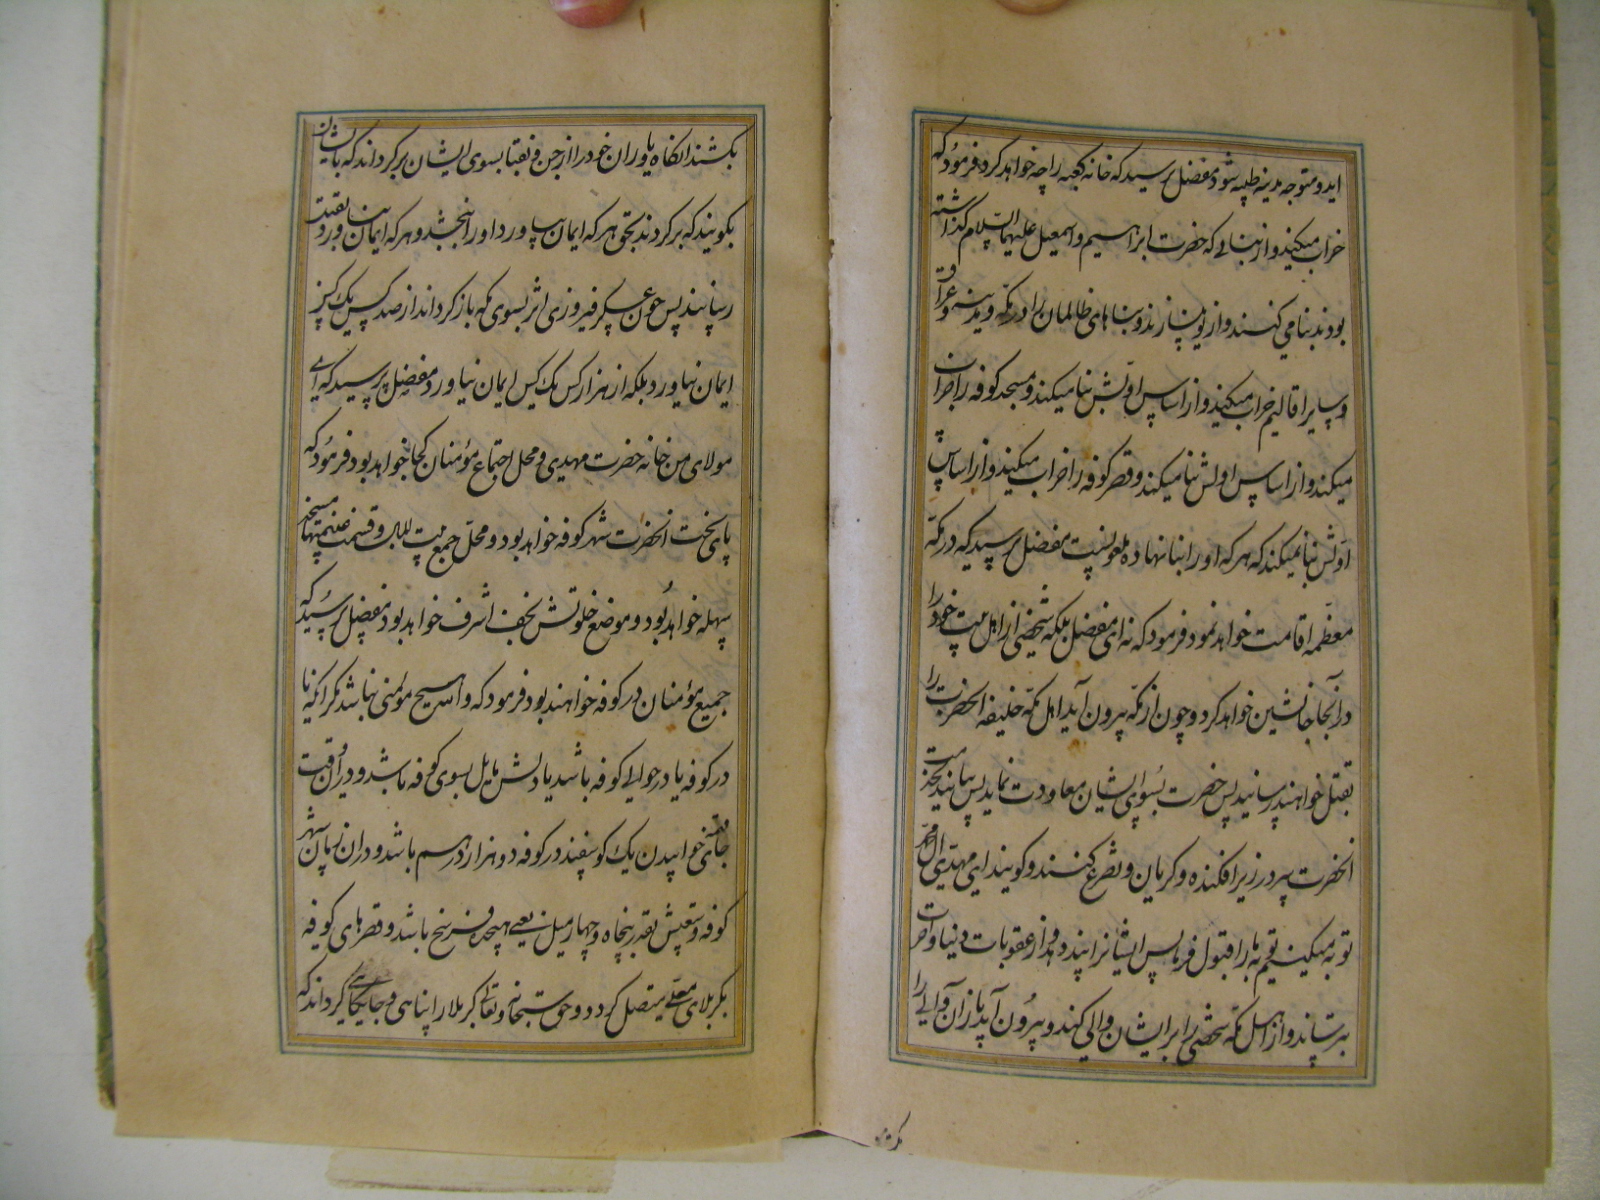 اید و متوجه مدینه طیبه شود مفضل پرسید که خانه کعبه را چه خواهد کرد فرمود که
خراب میکند و از بنایی که حضرت ابراهیم و اسمعیل علیهما السلام گذاشته
بودند بنا می کنند و از نو بسازند و بناهای ظالمان را در مکه و مدینه و عراق
و سایر اقالیم خراب میکند و از اساس اولش بنا میکند و مسجد کوفه را خراب
میکند و از اساس اولش بنا میکند و قصر کوفه را خراب میکند و از اساس
اولش بنا نمیکند که هر که او را بنا نهاده ملعونست مفضل پرسید که در مکه
معظمه اقامت خواهد نمود فرمود که نه ای مفضل بلکه شخصی از اهل بیت خود را
در آنجا جانشین خواهد کرد و چون از مکه بیرون آید اهل مکه خلیفه آنحضرت را
بقتل خواهند رسانید پس حضرت بسوی ایشان معاودت نماید پس بیایند بخدمت
آنحضرت سر در زیر افکنده و گریان و تضرع کنند و گویند ای مهدی آل محمد
توبه میکنیم توبه ما را قبول فرما پس ایشانرا پند دهد و از عقوبات دنیا و آخرت
بترساند و از اهل مکه شخصی را بر ایشان والی کند و بیرون آید باز آن والی را
بکشند
بکشند انگاه یاوران خود را از جن و نقبا بسوی ایشان برگرداند که بایشان
بگویند که برگردند بحق هر که ایمان بیاورد او را ببخشد و هر که ایمان نیاورد بقتل
رسانند پس چون عسکر فیروزی اثر بسوی مکه باز گرداند از صد کس یک کس
ایمان نیاورد بلکه از هزار کس یک کس ایمان نیاورد مفضل پرسید که ای
مولای من خانه حضرت مهدی و محل اجتماع مؤمنان کجا خواهد بود فرمود که
پای تخت آنحضرت شهر کوفه خواهد بود و محل جمع بیت المال و قسمت غنیمتها مسجد
سهله خواهد بود و موضع خلوتش نجف اشرف خواهد بود مفضل پرسید که
جمیع مؤمنان در کوفه خواهند بود فرمود که والله هیچ مؤمنی نباشد مگر آنکه یا
در کوفه یا در حوالی کوفه باشد یا دلش مایل بسوی کوفه باشد و در آن وقت
جای خوابیدن یک گوسفند در کوفه دو هزار درهم باشد و در آن زمان شهر
کوفه وسعتش بقدر پنجاه و چهار میل یعنی هیجده فرسخ باشد و قصرهای کوفه
بکربلای معلی متصل گردد و حق سبحانه و تعالی کربلا را پناهی و جایگاهی گرداند که